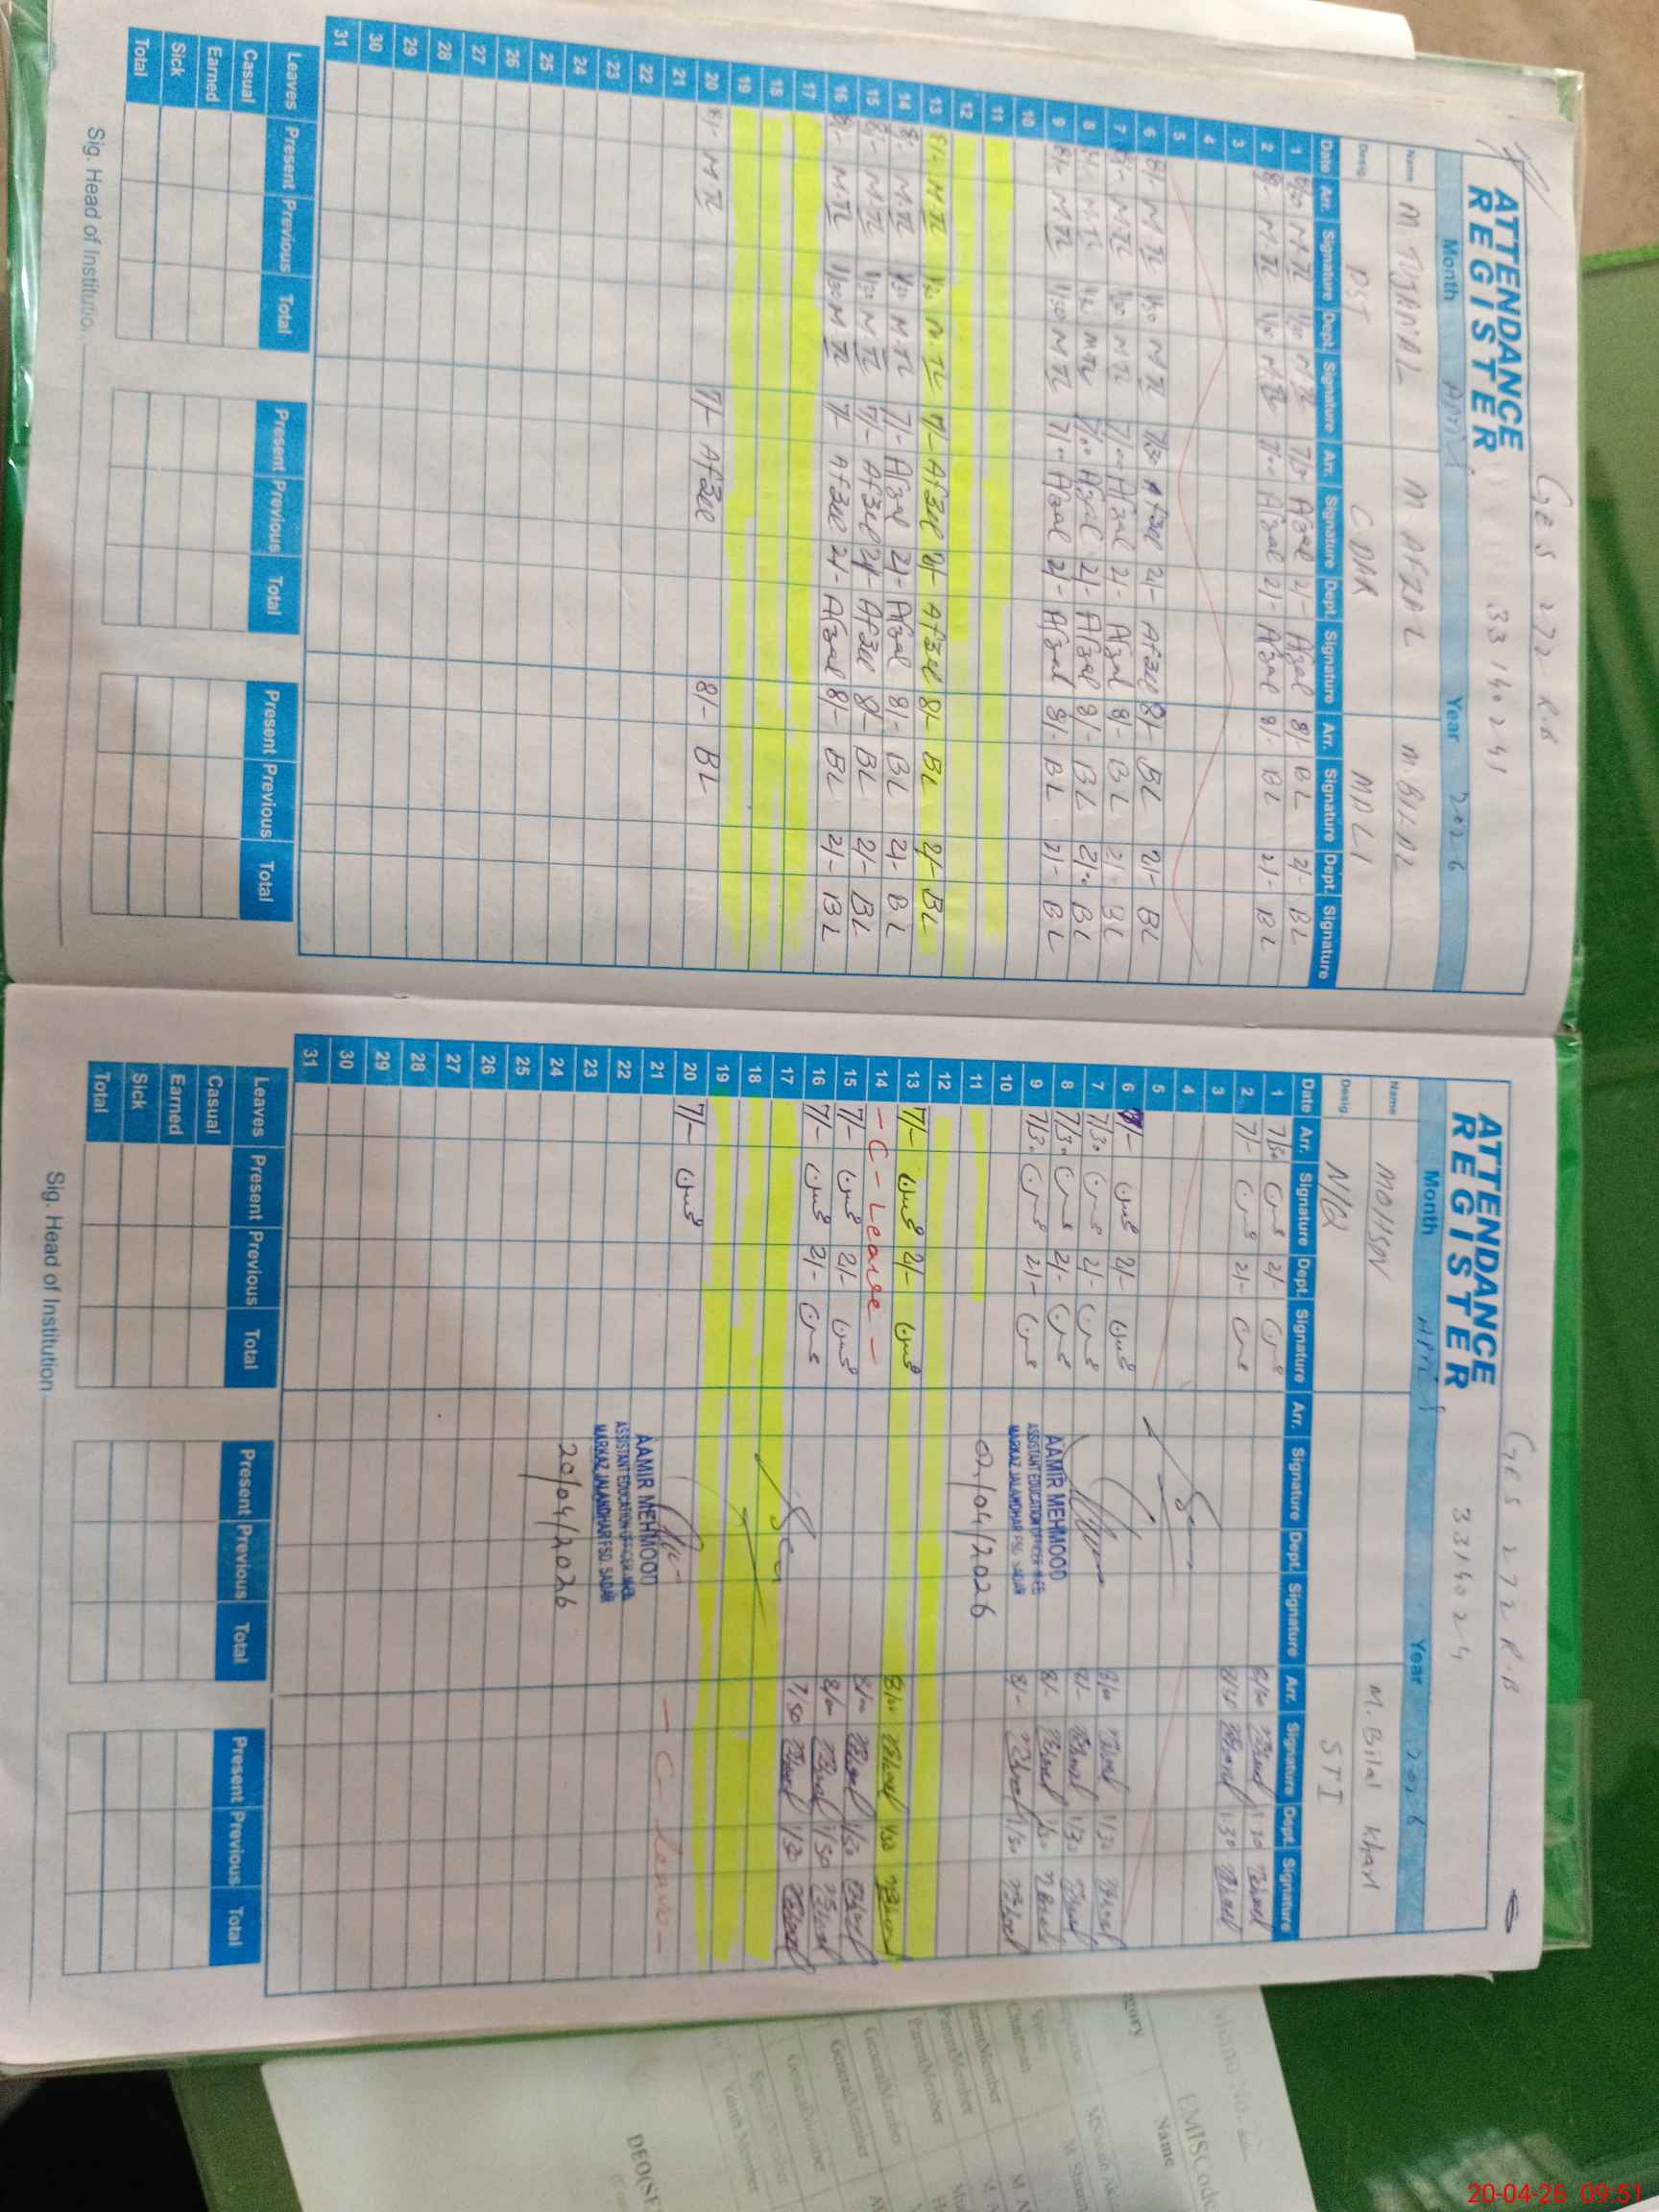 GES 272 R.B
ATTENDANCE
REGISTER
33140241
Month April Year 2026
Name M. TUJAMAL M. AFZAL M. BILAL
Desig. PST C. DAR MALI
Date Arr. Signature Dept. Signature Arr. Signature Dept. Signature Arr. Signature Dept. Signature
1 8/00 M.TL 1/30 M.TL 7/30 Afzal 2/- Afzal 8/- BL 2/- BL
2 8/- M.TL 1/30 M.TL 7/00 Afzal 2/- Afzal 8/- BL 2/- BL
3
4
5
6 8/- M TL 1/30 M TL 7/30 Afzal 2/- Afzal 8/- BL 2/- BL
7 8/- M.TL 1/30 M TL 7/00 Afzal 2/- Afzal 8/- BL 2/- BL
8 8/- M.TL 1/30 M TL 7/00 Afzal 2/- Afzal 8/- BL 2/- BL
9 8/- M TL 1/30 M TL 7/00 Afzal 2/- Afzal 8/- BL 2/- BL
10
11
12
13 8/- M.TL 1/30 M.TL 7/- Afzal 2/- Afzal 8/- BL 2/- BL
14 8/- M.TL 1/30 M.TL 7/- Afzal 2/- Afzal 8/- BL 2/- BL
15 8/- M.TL 1/30 M TL 7/- Afzal 2/- Afzal 8/- BL 2/- BL
16 8/- M.TL 1/30 M TL 7/- Afzal 2/- Afzal 8/- BL 2/- BL
17
18
19
20 8/- M.TL 7/- Afzal 8/- BL
21
22
23
24
25
26
27
28
29
30
31
Leaves Present Previous Total Present Previous Total Present Previous Total
Casual
Sick
Earned
Total
Sig. Head of Institution
GES 272 R.B
ATTENDANCE
REGISTER
3314024
Month April Year 2026
Name MOHSIN M. Bilal Kharl
Desig. N/Q STI
Date Arr. Signature Dept. Signature Arr. Signature Dept. Signature Arr. Signature Dept. Signature
1 7/30 محسن 2/- محسن 8/00 1/30
2 7/- محسن 2/- محسن 1/30
3
4
5
6 7/- محسن 2/- محسن 8/00 1/30
7 7/30 محسن 2/- محسن 8/- 1/30
8 7/30 محسن 2/- محسن 8/- 1/30
9 7/30 محسن 2/- محسن 8/- 1/30
10
AAMIR MEHMOOD
ASSISTANT EDUCATION OFFICER M-EE
MARKAZ JALANDHAR FSD. SADAR
02/04/2026
11
12
13 7/- محسن 2/- محسن 8/00 1/30
14 - C - Leave - 8/00 1/30
15 7/- محسن 2/- محسن 8/00 1/30
16 7/- محسن 2/- محسن 7/50 1/30
17
18
19
20 7/- محسن - C - leave -
21
22
23
AAMIR MEHMOOD
ASSISTANT EDUCATION OFFICER M-EE
MARKAZ JALANDHAR FSD. SADAR
20/04/2026
24
25
26
27
28
29
30
31
Leaves Present Previous Total Present Previous Total Present Previous Total
Casual
Sick
Earned
Total
Sig. Head of Institution
EMISCode
Name
ParentMember
ParentMember
GeneralMember
GeneralMember
GeneralMember
DEO(SE
20-04-26 09:51